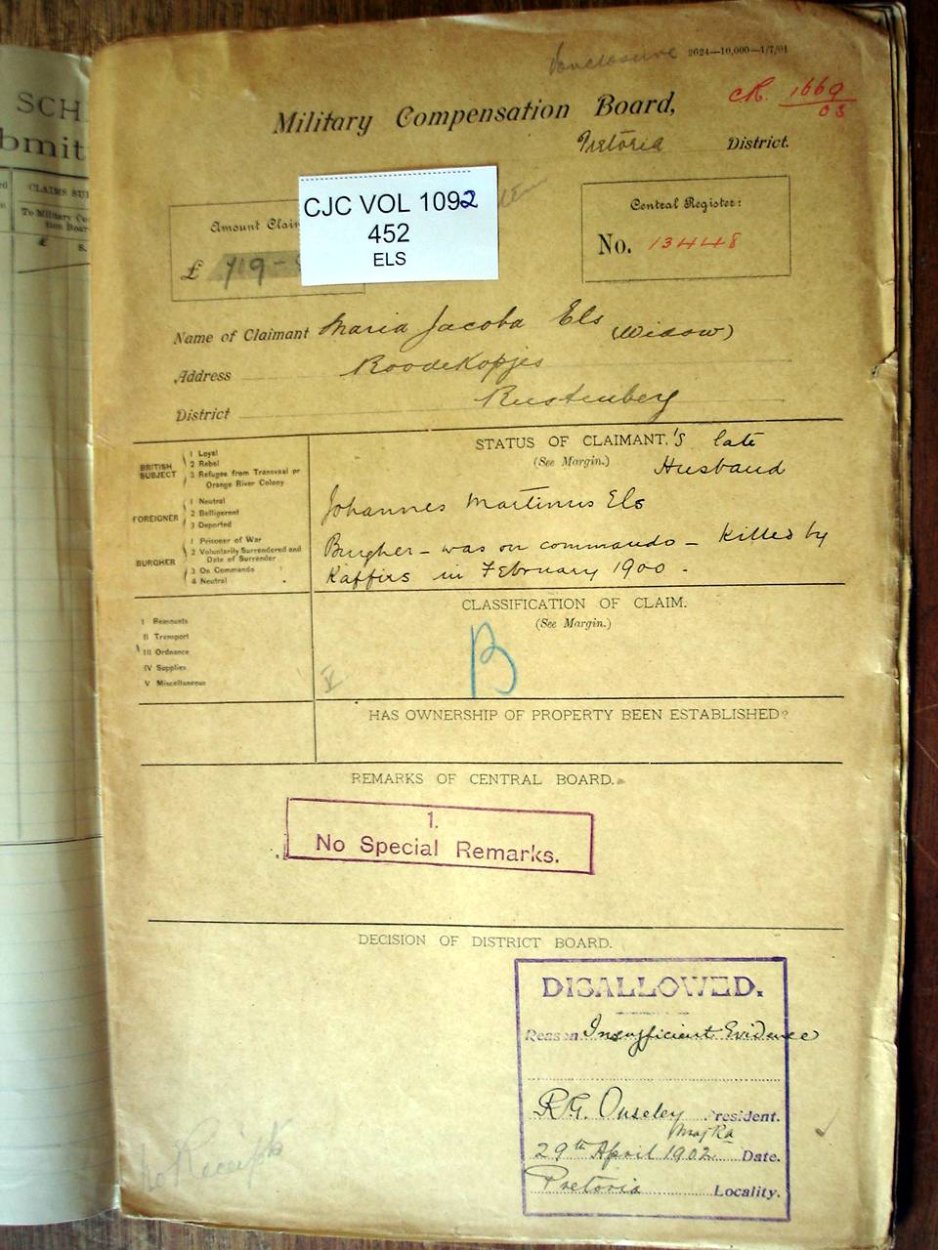 SCH
bmit
CLAIMS SU
To Military Co
tion Boar
£ s.
2624—10,000—1/7/01
Military Compensation Board,
CR. 1669/03
Pretoria District.
CJC VOL 1092
452
ELS
Amount Clai
£ 719-
Central Register:
No. 13448
Name of Claimant Maria Jacoba Els (Widow)
Address Roodekopjes
District Rustenberg
STATUS OF CLAIMANT.'s late
(See Margin.) Husband
BRITISH SUBJECT
1 Loyal
2 Rebel
3 Refugee from Transvaal or
Orange River Colony
FOREIGNER
1 Neutral
2 Belligerent
3 Deported
BURGHER
1 Prisoner of War
2 Voluntarily Surrendered and
Date of Surrender
3 On Commando
4 Neutral
Johannes Martinus Els
Burgher – was on commando – Killed by
Kaffirs in February 1900 .
CLASSIFICATION OF CLAIM.
(See Margin.)
I Remounts
II Transport
III Ordnance
IV Supplies
V Miscellaneous
V
B
HAS OWNERSHIP OF PROPERTY BEEN ESTABLISHED?
REMARKS OF CENTRAL BOARD.
1.
No Special Remarks.
DECISION OF DISTRICT BOARD.
DISALLOWED.
Reason Insufficient Evidence
R.G. Ouseley President.
Maj RA
29th April 1902 Date.
Pretoria Locality.
No Receipts